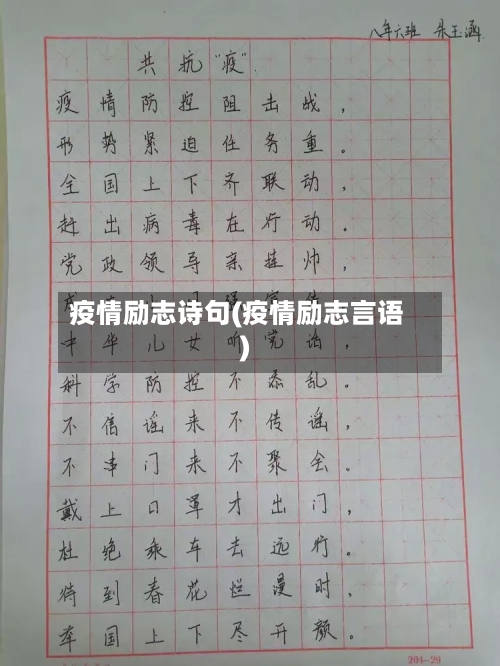 八年六班 朱玉涵
共抗“疫”
疫情防控阻击战，
形势紧迫任务重。
全国上下齐联动，
赶出病毒在行动。
党政领导亲挂帅，
疫情励志诗句(疫情励志言语
)
中华儿女听党话，
科学防控不忝乱。
不信谣来不传谣，
不串门来不聚会。
戴上口罩才出门，
杜绝乘车去远行。
待到春花烂漫时，
举国上下尽开颜。
204-29